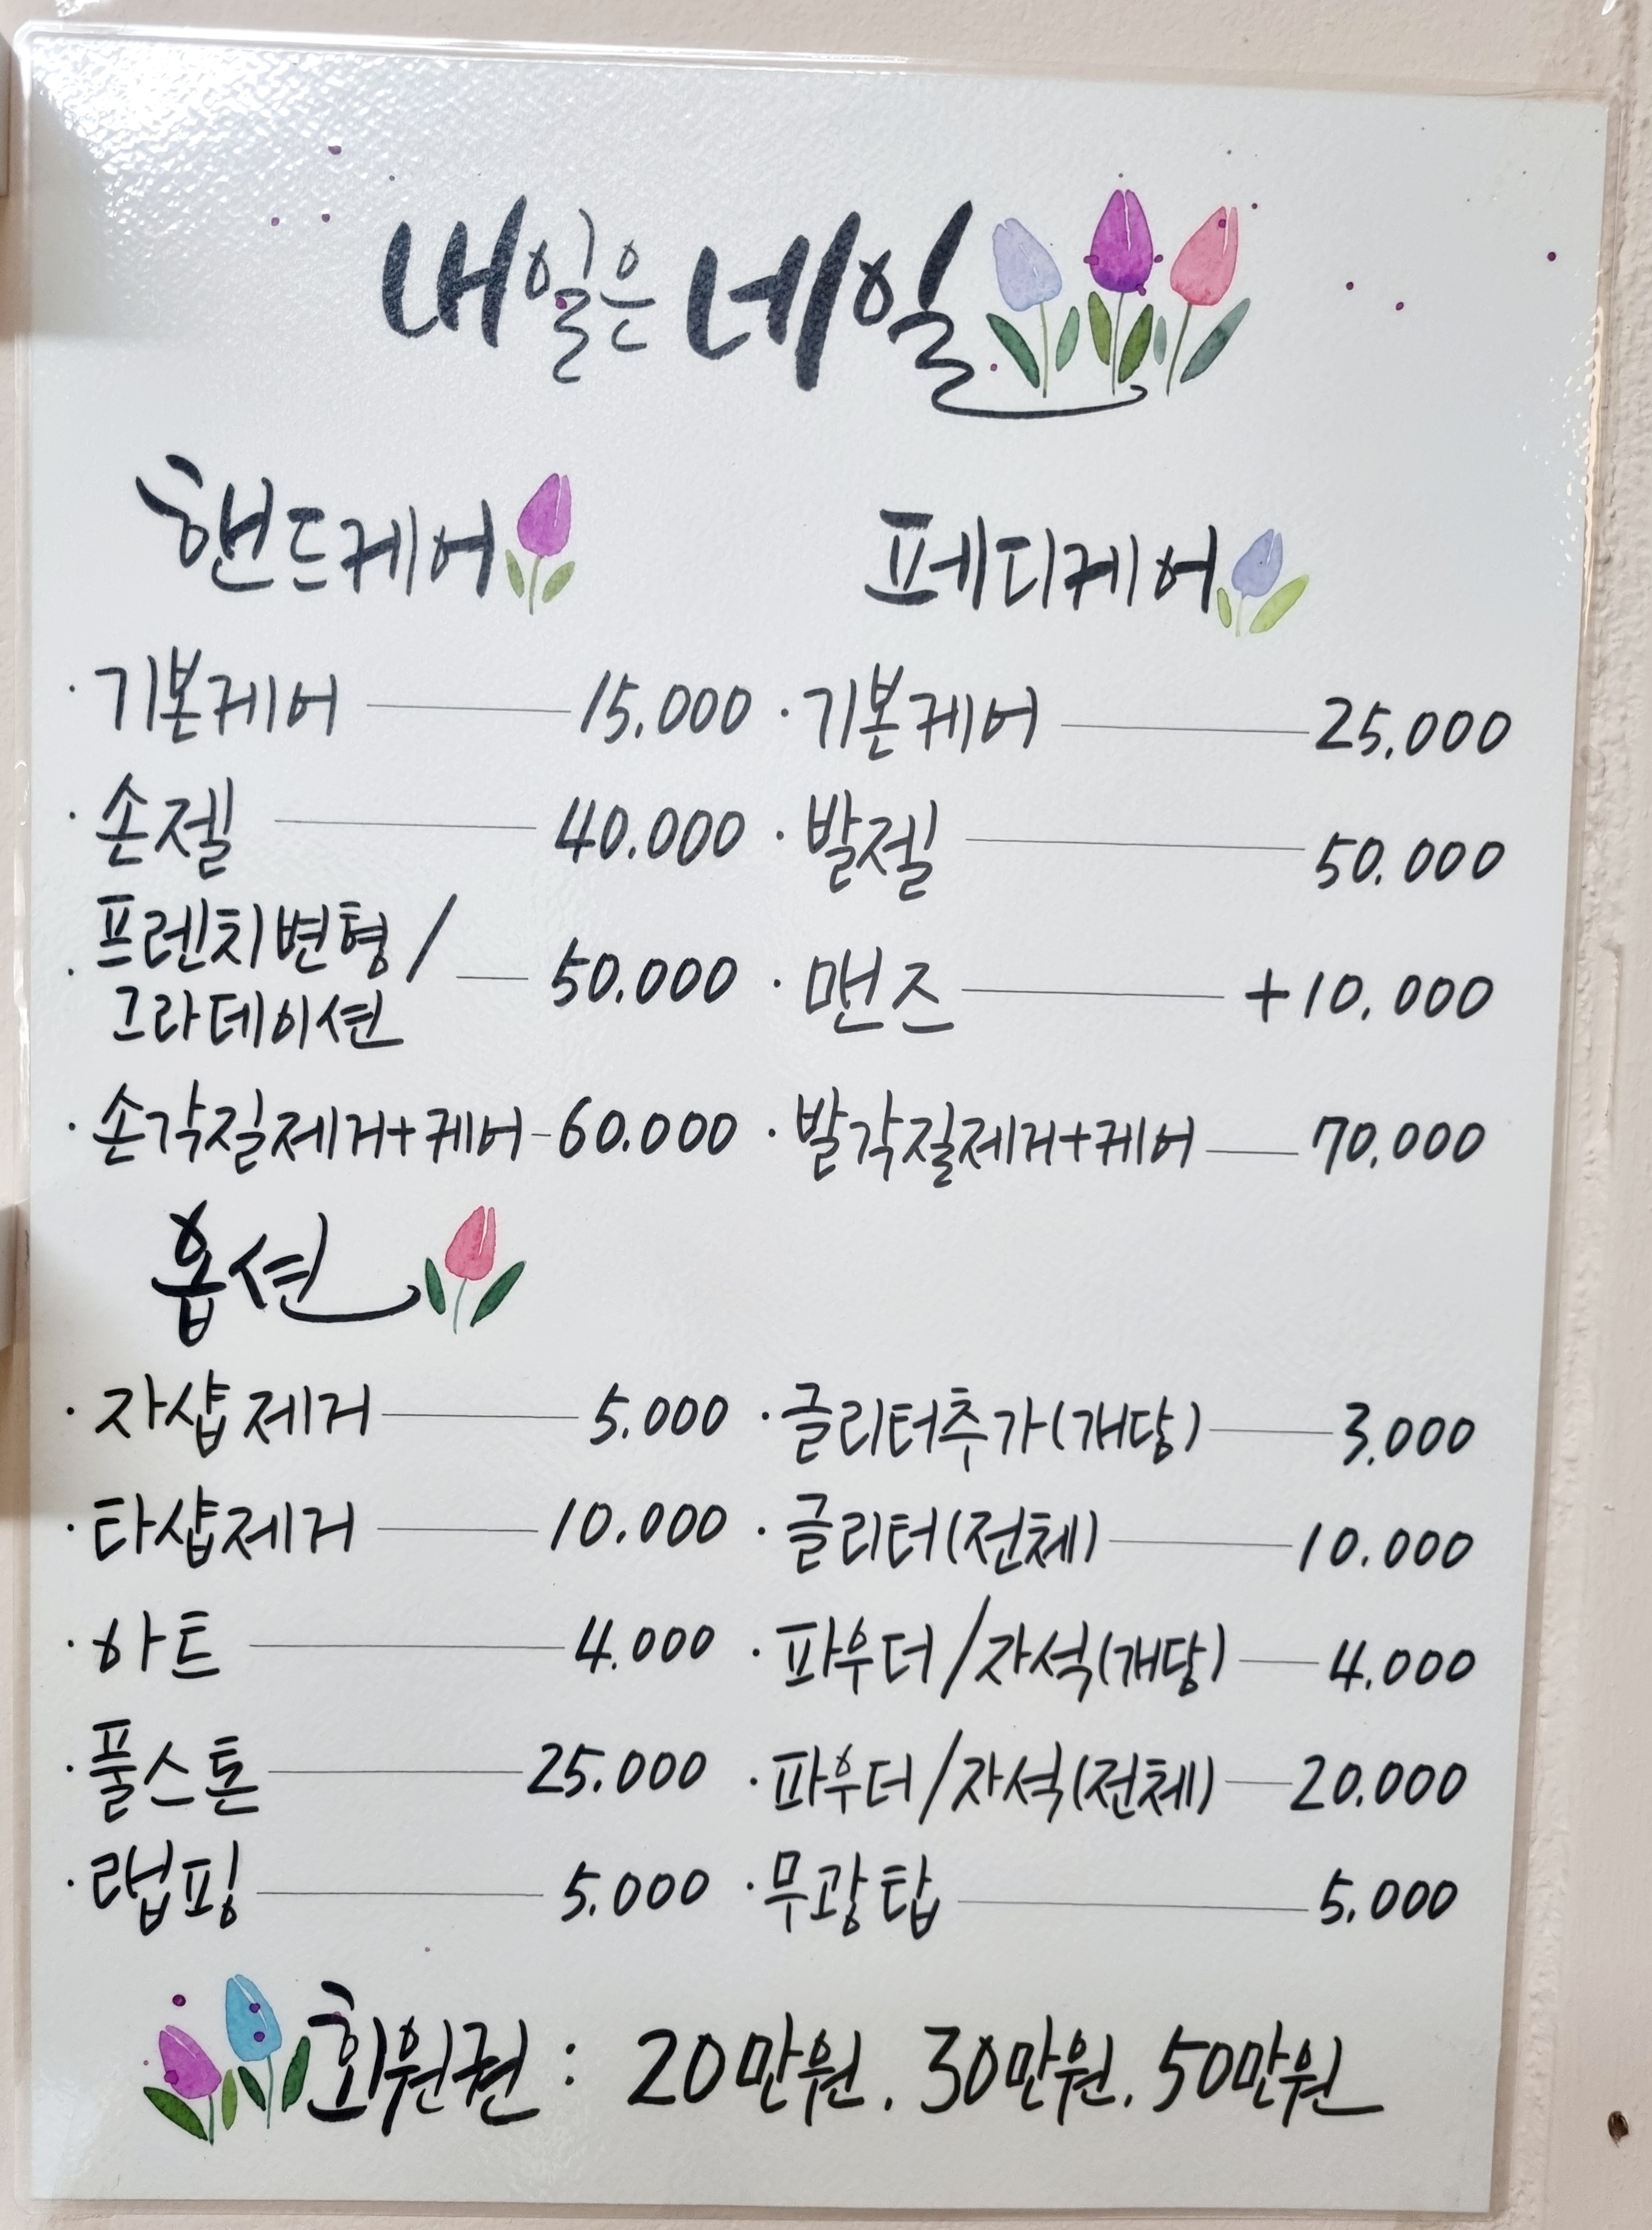 내일은 네일
핸드케어
· 기본케어 15,000
· 손젤 40.000
· 프렌치변형/
그라데이션 50.000
· 손각질제거+케어 60.000
페디케어
· 기본케어 25,000
· 발젤 50.000
· 맨즈 +10,000
· 발각질제거+케어 70,000
옵션
· 자샵제거 5.000
· 타샵제거 10.000
· 하트 4.000
· 풀스톤 25.000
· 랩핑 5.000
· 글리터추가(개당) 3.000
· 글리터(전체) 10.000
· 파우더/자석(개당) 4.000
· 파우더/자석(전체) 20.000
· 무광탑 5.000
회원권 : 20만원. 30만원. 50만원